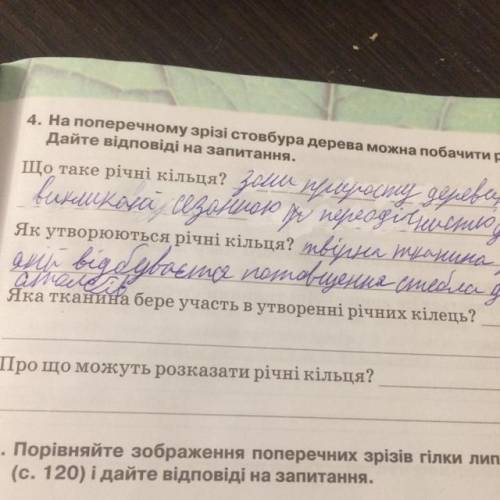 4. На поперечному зрізі стовбура дерева можна побачити р
Дайте відповіді на запитання.
Що таке річні кільця? зони приросту дерева
сезонною періодичністю
Як утворюються річні кільця? твірна тканина
якій відбувається потовщення стебла

Яка тканина бере участь в утворенні річних кілець?
Про що можуть розказати річні кільця?
. Порівняйте зображення поперечних зрізів гілки лип
(с. 120) і дайте відповіді на запитання.